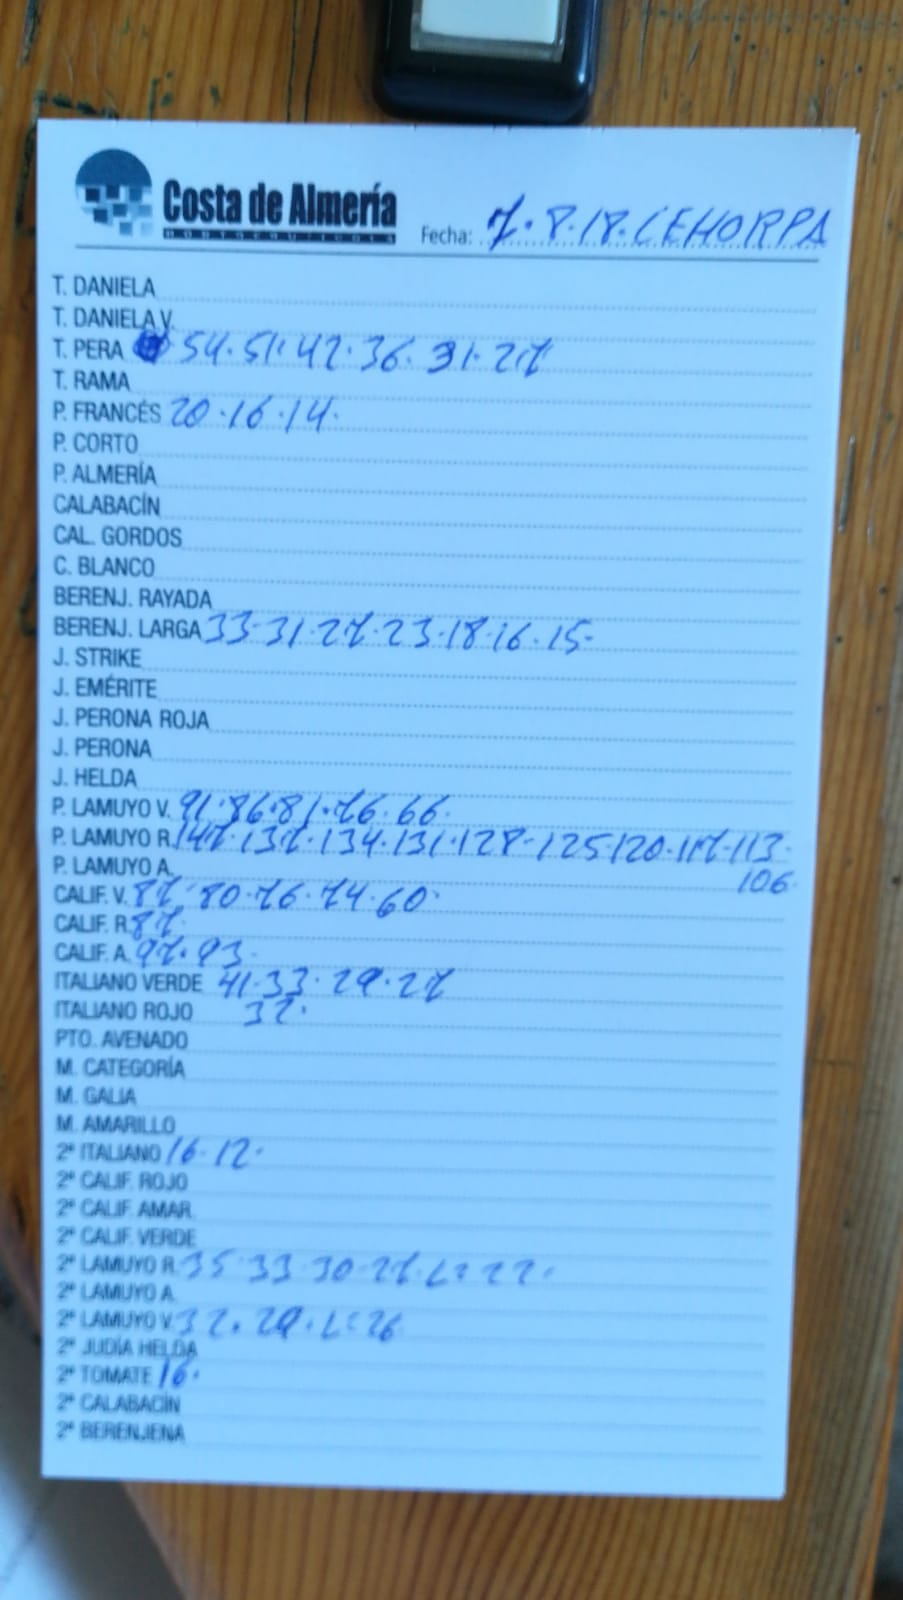 Costa de Almería
HORTOFRUTICOLA
Fecha: 7.8.18.CEHORPA
T. DANIELA
T. DANELA V.
T. PERA 54.51.42.36.31.27
T. RAMA
P. FRANCÉS 20.16.14.
P. CORTO
P. ALMERÍA
CALABACÍN
CAL. GORDOS
C. BLANCO
BERENJ. RAYADA
BERENJ. LARGA 33.31.27.23.18.16.15.
J. STRIKE
J. EMÉRITE
J. PERONA ROJA
J. PERONA
J. HELDA
P. LAMUYO V. 91.86.81.76.66.
P. LAMUYO R. 147.137.134.131.128.125.120.117.113.
106.
P. LAMUYO A.
CALIF. V. 87.80.76.74.60.
CALIF. R. 87.
CALIF. A. 97.93.
ITALIANO VERDE 41.33.29.27
ITALIANO ROJO 32.
PTO. AVENADO
M. CATEGORÍA
M. GALIA
M. AMARILLO
2ª ITALIANO 16.12.
2ª CALIF. ROJO
2ª CALIF. AMAR.
2ª CALIF. VERDE
2ª LAMUYO R. 35.33.30.27.L=22.
2ª LAMUYO A.
2ª LAMUYO V. 32.29.L=26
2ª JUDÍA HELDA
2ª TOMATE 16.
2ª CALABACÍN
2ª BERENJENA